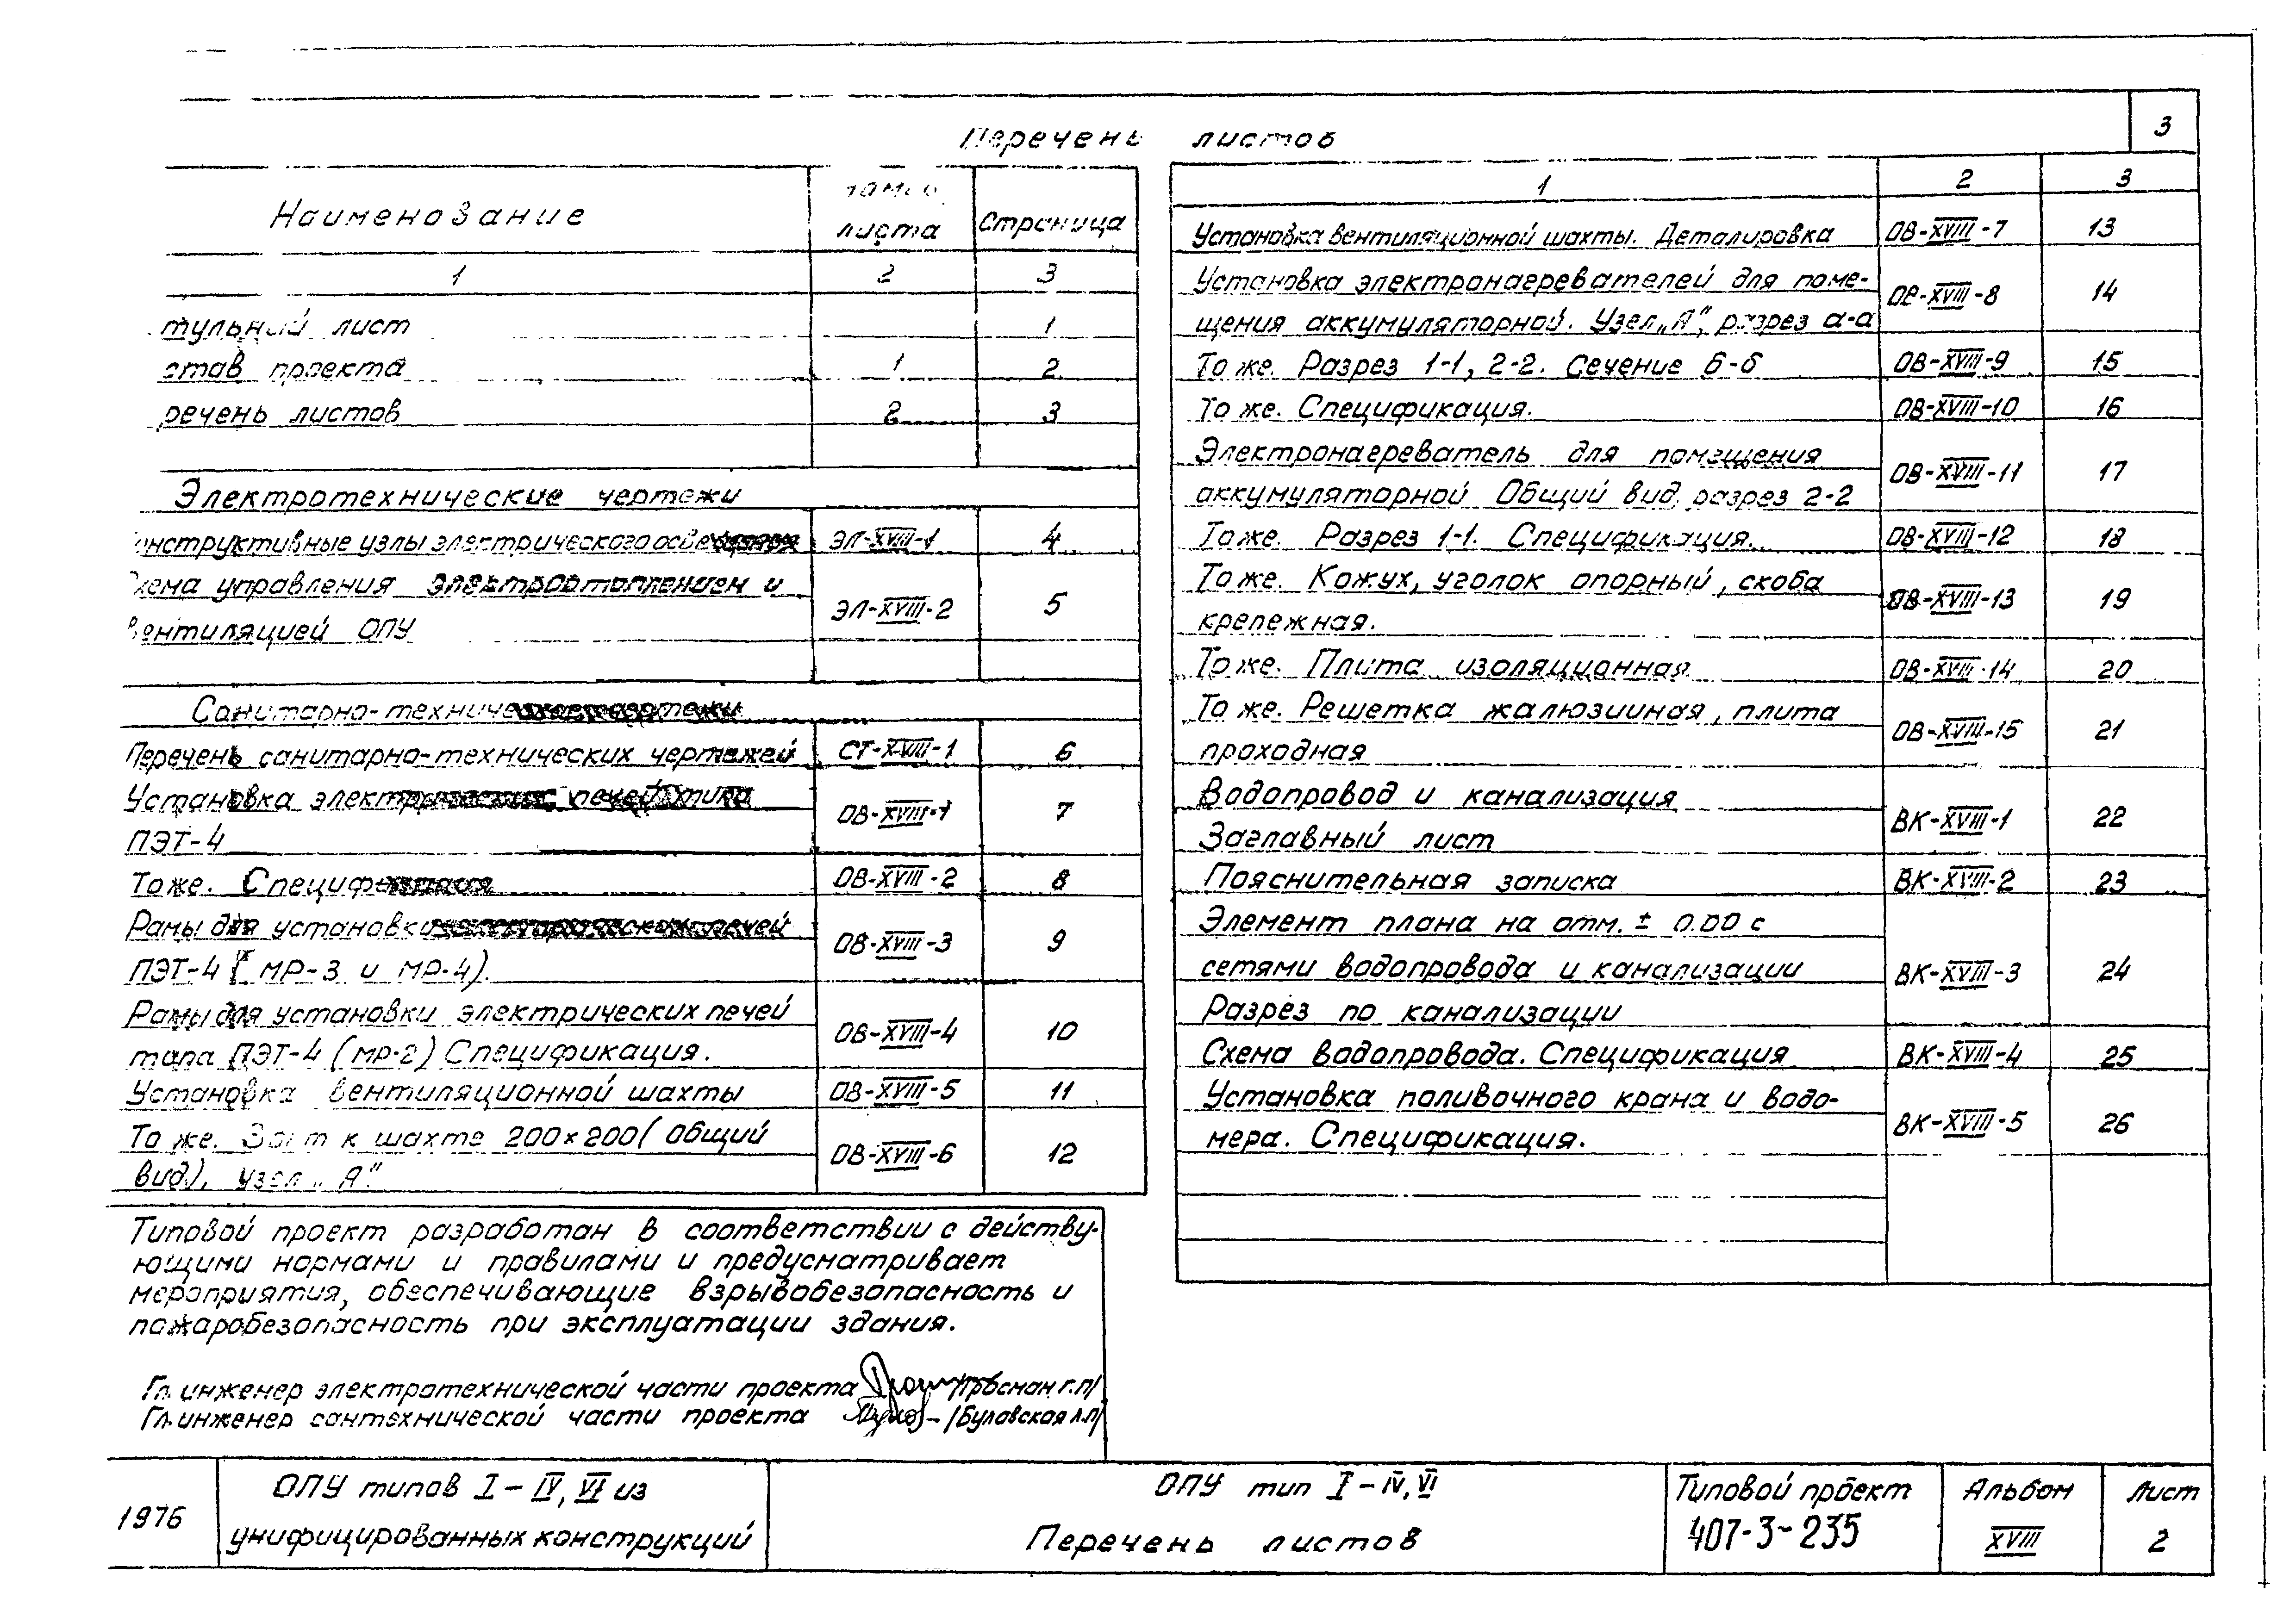 3
Перечень листов
Наименование
листа
Страница
1 2 3
тульный лист 1
став проекта 1 2
речень листов 2 3
Электротехнические чертежи
нструктивные узлы электрического ЭЛ-XVIII-1 4
хема управления электроотоплением и
вентиляцией ОПУ ЭЛ-XVIII-2 5
Санитарно-технические чертежи
Перечень санитарно-технических чертежей СТ-XVIII-1 6
Установка электрических печей типа
ПЭТ-4 ОВ-XVIII-1 7
То же. Спецификация ОВ-XVIII-2 8
Рамы для установки электрических печей
ПЭТ-4 (МР-3 и МР-4). ОВ-XVIII-3 9
Рамы для установки электрических печей
типа ПЭТ-4 (МР-2) Спецификация. ОВ-XVIII-4 10
Установка вентиляционной шахты ОВ-XVIII-5 11
То же. Зонт к шахте 200×200 (Общий
вид), узел „А" ОВ-XVIII-6 12
1 2 3
Установка вентиляционной шахты. Деталировка ОВ-XVIII-7 13
Установка электронагревателей для поме-
щения аккумуляторной. Узел „А", разрез а-а ОВ-XVIII-8 14
То же. Разрез 1-1, 2-2. Сечение б-б ОВ-XVIII-9 15
То же. Спецификация. ОВ-XVIII-10 16
Электронагреватель для помещения
аккумуляторной Общий вид, разрез 2-2 ОВ-XVIII-11 17
То же. Разрез 1-1. Спецификация. ОВ-XVIII-12 18
То же. Кожух, уголок опорный, скоба
крепежная. ОВ-XVIII-13 19
То же. Плита изоляционная ОВ-XVIII-14 20
То же. Решетка жалюзииная, плита
проходная ОВ-XVIII-15 21
Водопровод и канализация
Заглавный лист ВК-XVIII-1 22
Пояснительная записка ВК-XVIII-2 23
Элемент плана на отм. ± 0.00 с
сетями водопровода и канализации
Разрез по канализации ВК-XVIII-3 24
Схема водопровода. Спецификация ВК-XVIII-4 25
Установка поливочного крана и водо-
мера. Спецификация. ВК-XVIII-5 26
Типовой проект разработан в соответствии с действу-
ющими нормами и правилами и предусматривает
мероприятия, обеспечивающие взрывобезопасность и
пожаробезопасность при эксплуатации здания.
Гл. инженер электротехнической части проекта /Гросман Г.П/
Гл. инженер сантехнической части проекта /Булавская Л.П/
1976
ОПУ типов I-IV, VI из
унифицированных конструкций
ОПУ тип I-IV, VI
Перечень листов
Типовой проект
407-3-235
Альбом
XVIII
Лист
2